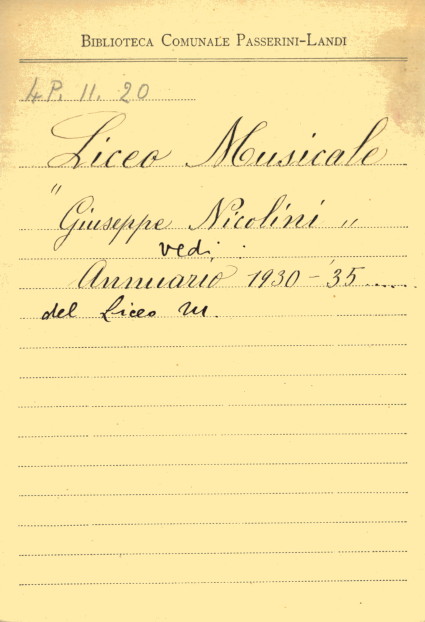 BIBLIOTECA COMUNALE PASSERINI-LANDI
4P. 11. 20
Liceo Musicale
"Giuseppe Nicolini"
vedi :
Annuario 1930-'35.....
del Liceo M.